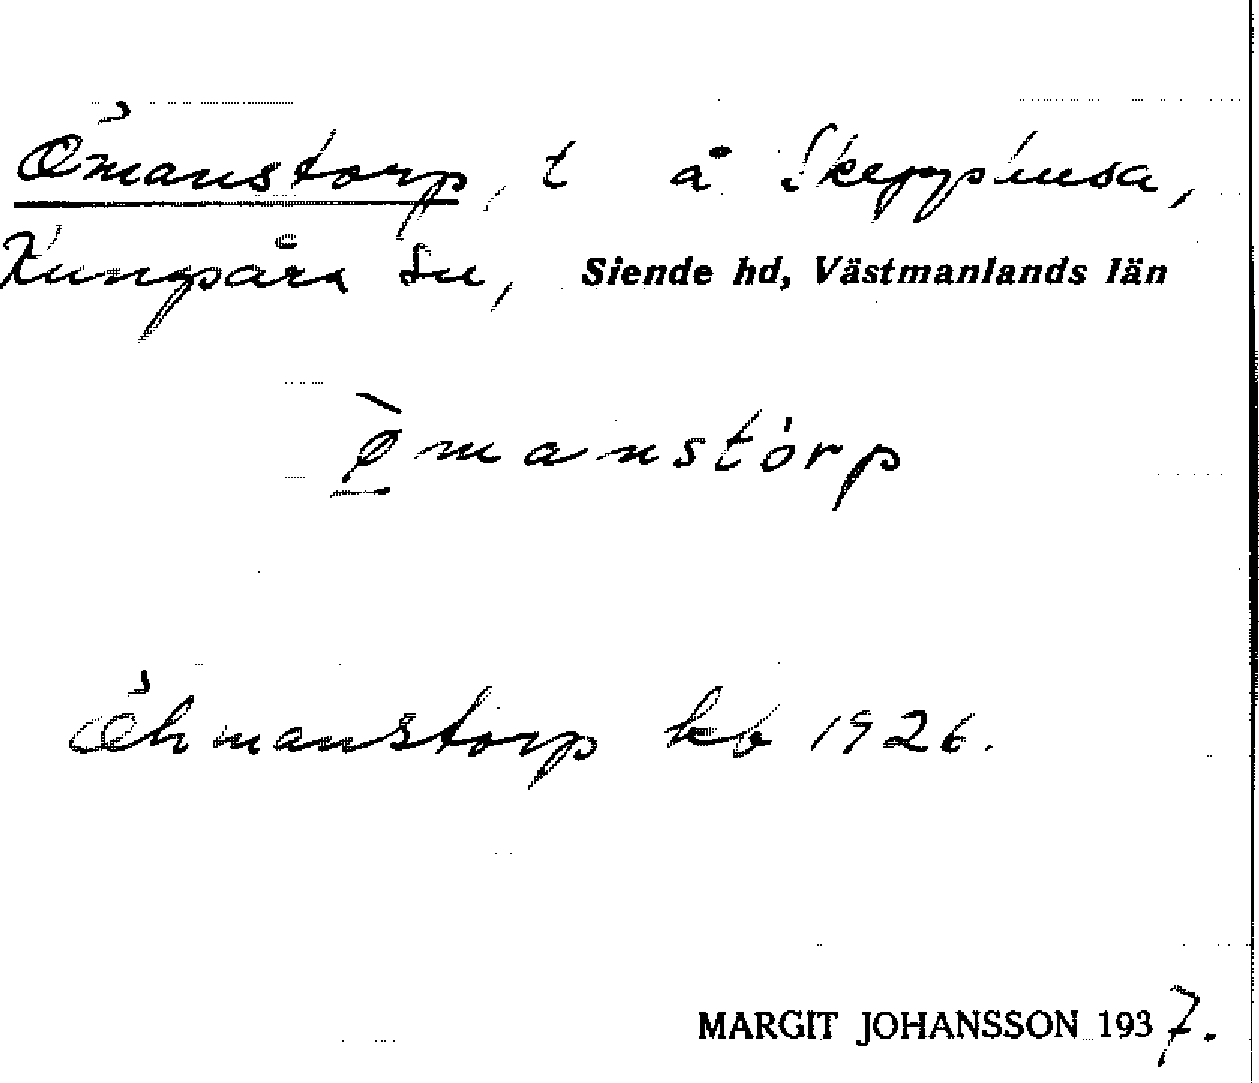 Ömanstorp, t å Skeppinsa,
Kungsåra sn, Siende hd, Västmanlands län
ømanstòrp
Öhmanstorp kb 1926.
MARGIT JOHANSSON 1937.